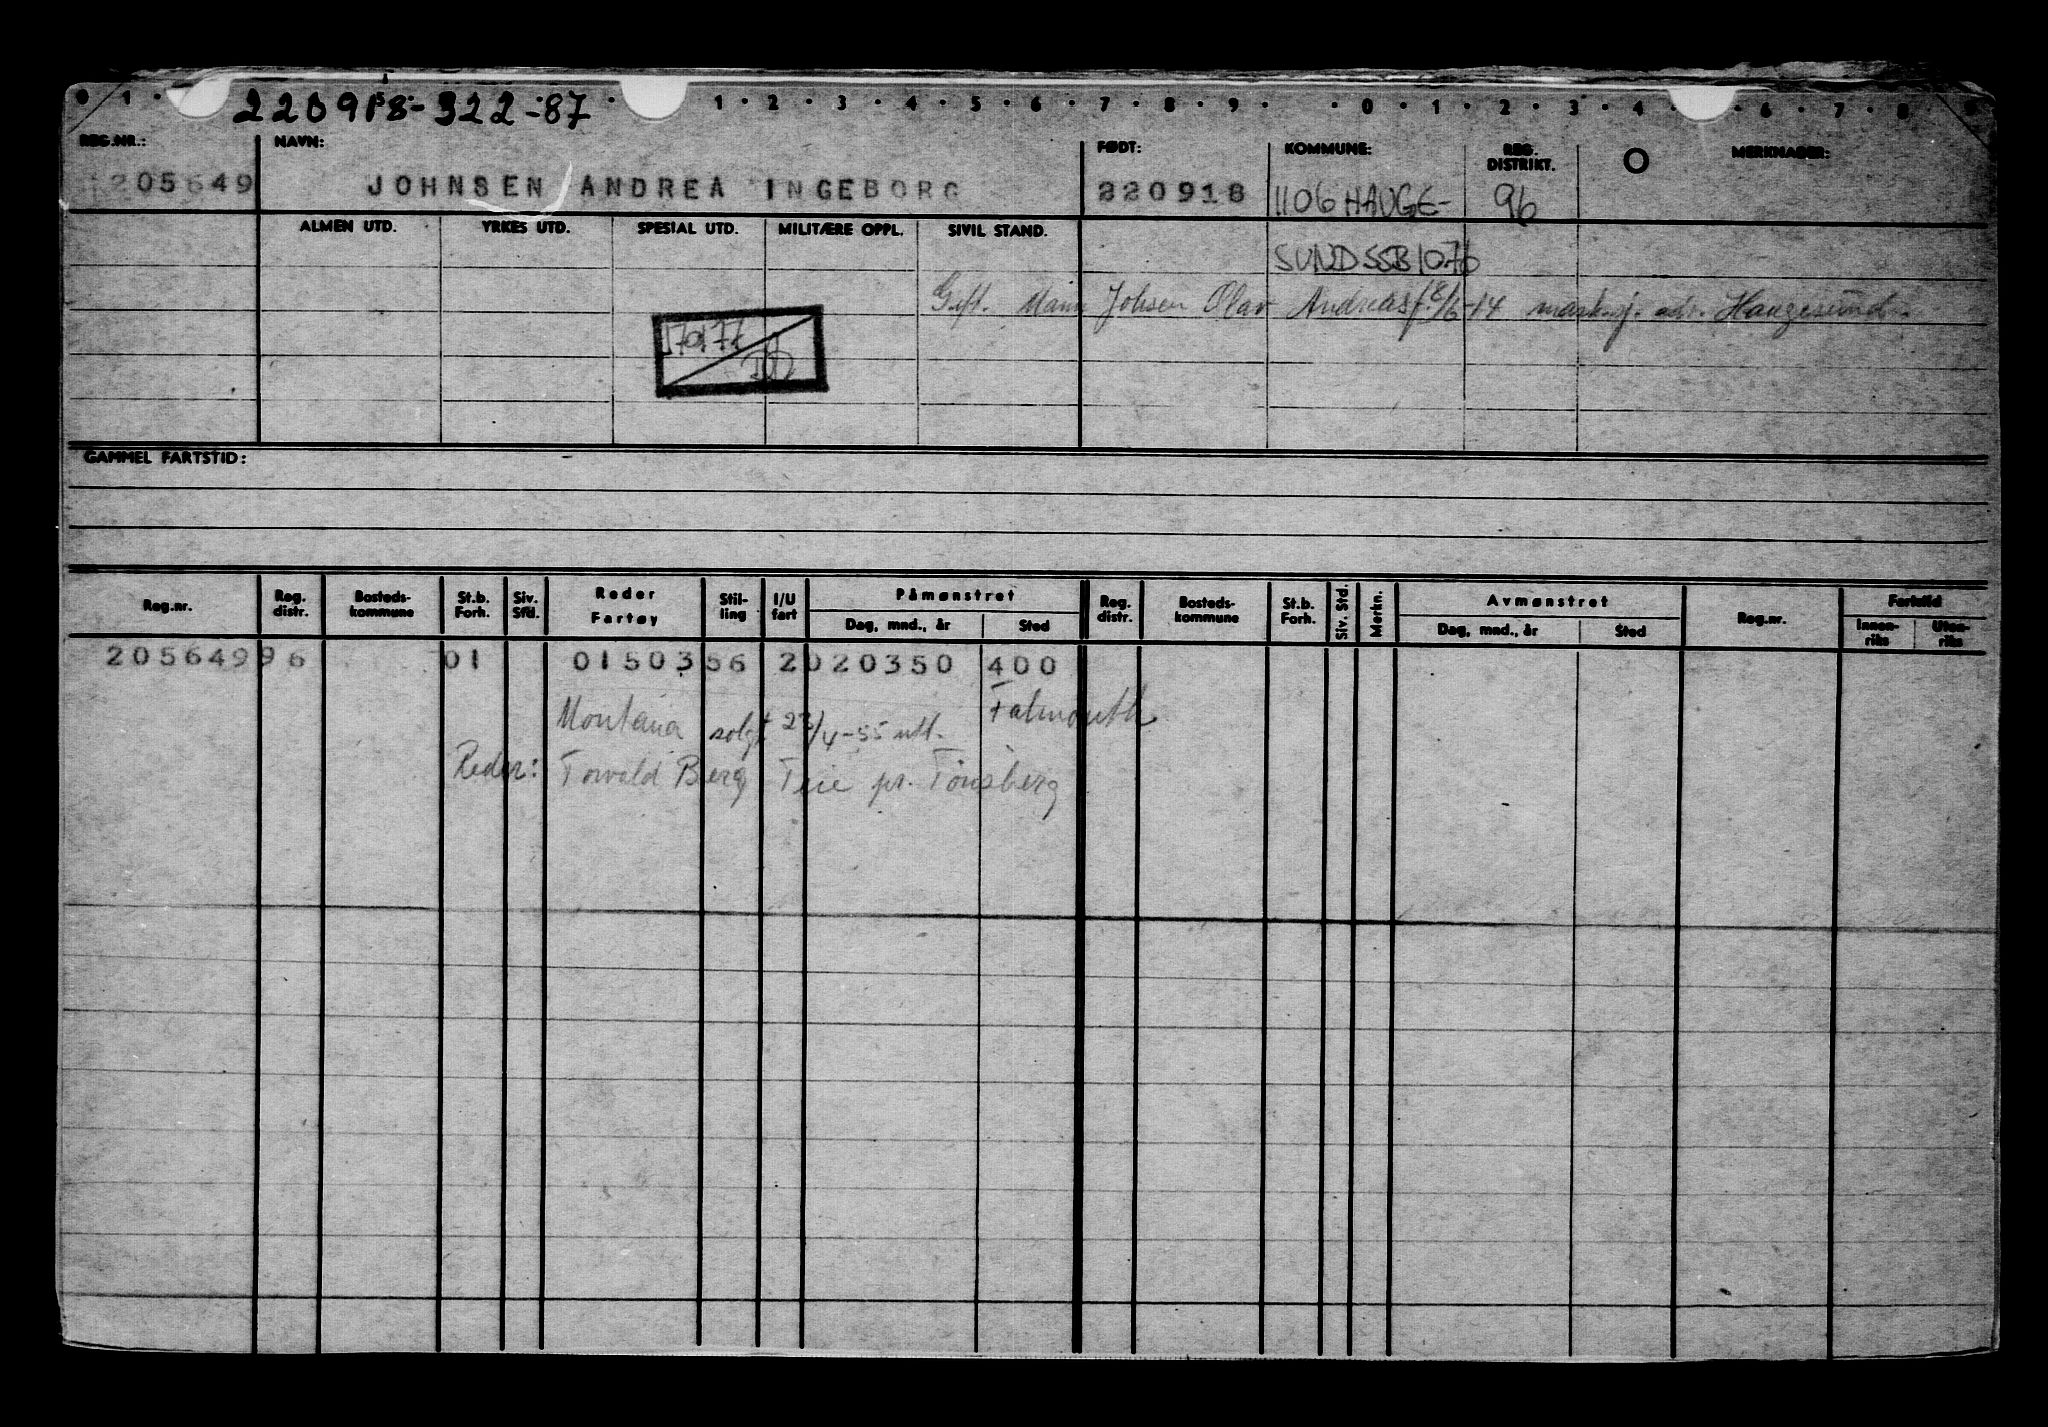 0 1 · 1 · 2 · 3 · 4 · 5 · 6 · 7 · 8 · 9 · · 0 · 1 · 2 · 3 · 4 · 6 · 7 · 8 · 9
220918-322-87
REG.NR.: NAVN: FØDT: KOMMUNE: REG. DISTRIKT. O MERKNADER:
205649 JOHNSEN ANDREA INGEBORG 220918 1106 HAUGE- 96
ALMEN UTD. YRKES UTD. SPESIAL UTD. MILITÆRE OPPL. SIVIL STAND.
SUND SSB 1076
Gift. Mann Johsen Olav Andreas f 18/6-14 mask.sj. adr. Haugesund.
GAMMEL FARTSTID:
Reg.nr. Reg. distr. Bosteds- kommune St.b. Forh. Siv. Std. Reder Fartøy Stil- ling I/U fart Påmønstret Reg. distr. Bosteds- kommune St.b. Forh. Siv. Std. Merkn. Avmønstret Reg.nr. Fartstid
Dag, mnd., år Sted Dag, mnd., år Sted Innen- riks Uten- riks
205649 96 01 01503 56 2 020350 400
Montana solgt 23/4-55 utl. Falmouth
Reder: Torvald Berg Teie pr. Tönsberg